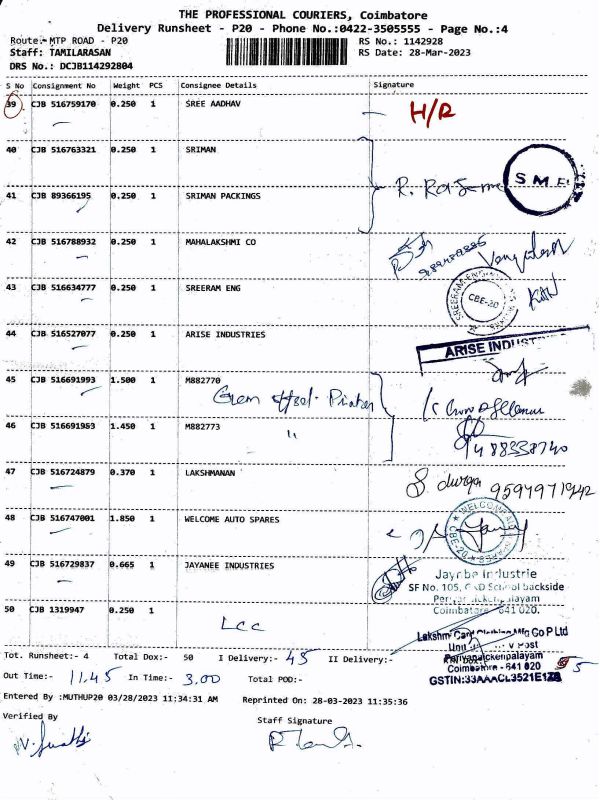 THE PROFESSIONAL COURIERS, Coimbatore
Delivery Runsheet - P20 - Phone No.:0422-3505555 - Page No.:4
Route:- MTP ROAD - P20
RS No.: 1142928
Staff: TAMILARASAN
RS Date: 28-Mar-2023
DRS No.: DCJB114292804
S No Consignment No Weight PCS Consignee Details Signature
39 CJB 516759170 0.250 1 SREE AADHAV H/R
40 CJB 516763321 0.250 1 SRIMAN
S M E
41 CJB 89366195 0.250 1 SRIMAN PACKINGS
42 CJB 516788932 0.250 1 MAHALAKSHMI CO
43 CJB 516634777 0.250 1 SREERAM ENG
SREERAM ENG
CBE-20
44 CJB 516527077 0.250 1 ARISE INDUSTRIES
ARISE INDUST
45 CJB 516691993 1.500 1 M882770
Gem offset Printer
46 CJB 1.450 1 M882773
"
47 CJB 516724879 0.370 1 LAKSHMANAN
durga
48 CJB 516747001 1.850 1 WELCOME AUTO SPARES
WELCOM
CBE-20
49 CJB 516729837 0.665 1 JAYANEE INDUSTRIES
Industrie
SF No. 105, School backside
Coimbatore - 641 020.
50 CJB 1319947 0.250 1
LCC
Lakshmi Card Clothing Mfg Co P Ltd
Unit Post
Periyanaickenpalayam
Coimbatore - 641 020
GSTIN:33AAACL3521E1Z8
Tot. Runsheet:- 4 Total Dox:- 50 I Delivery:- 45 II Delivery:- 5
Out Time:- 11.45 In Time:- 3.00 Total POD:-
Entered By :MUTHUP20 03/28/2023 11:34:31 AM Reprinted On: 28-03-2023 11:35:36
Verified By
Staff Signature